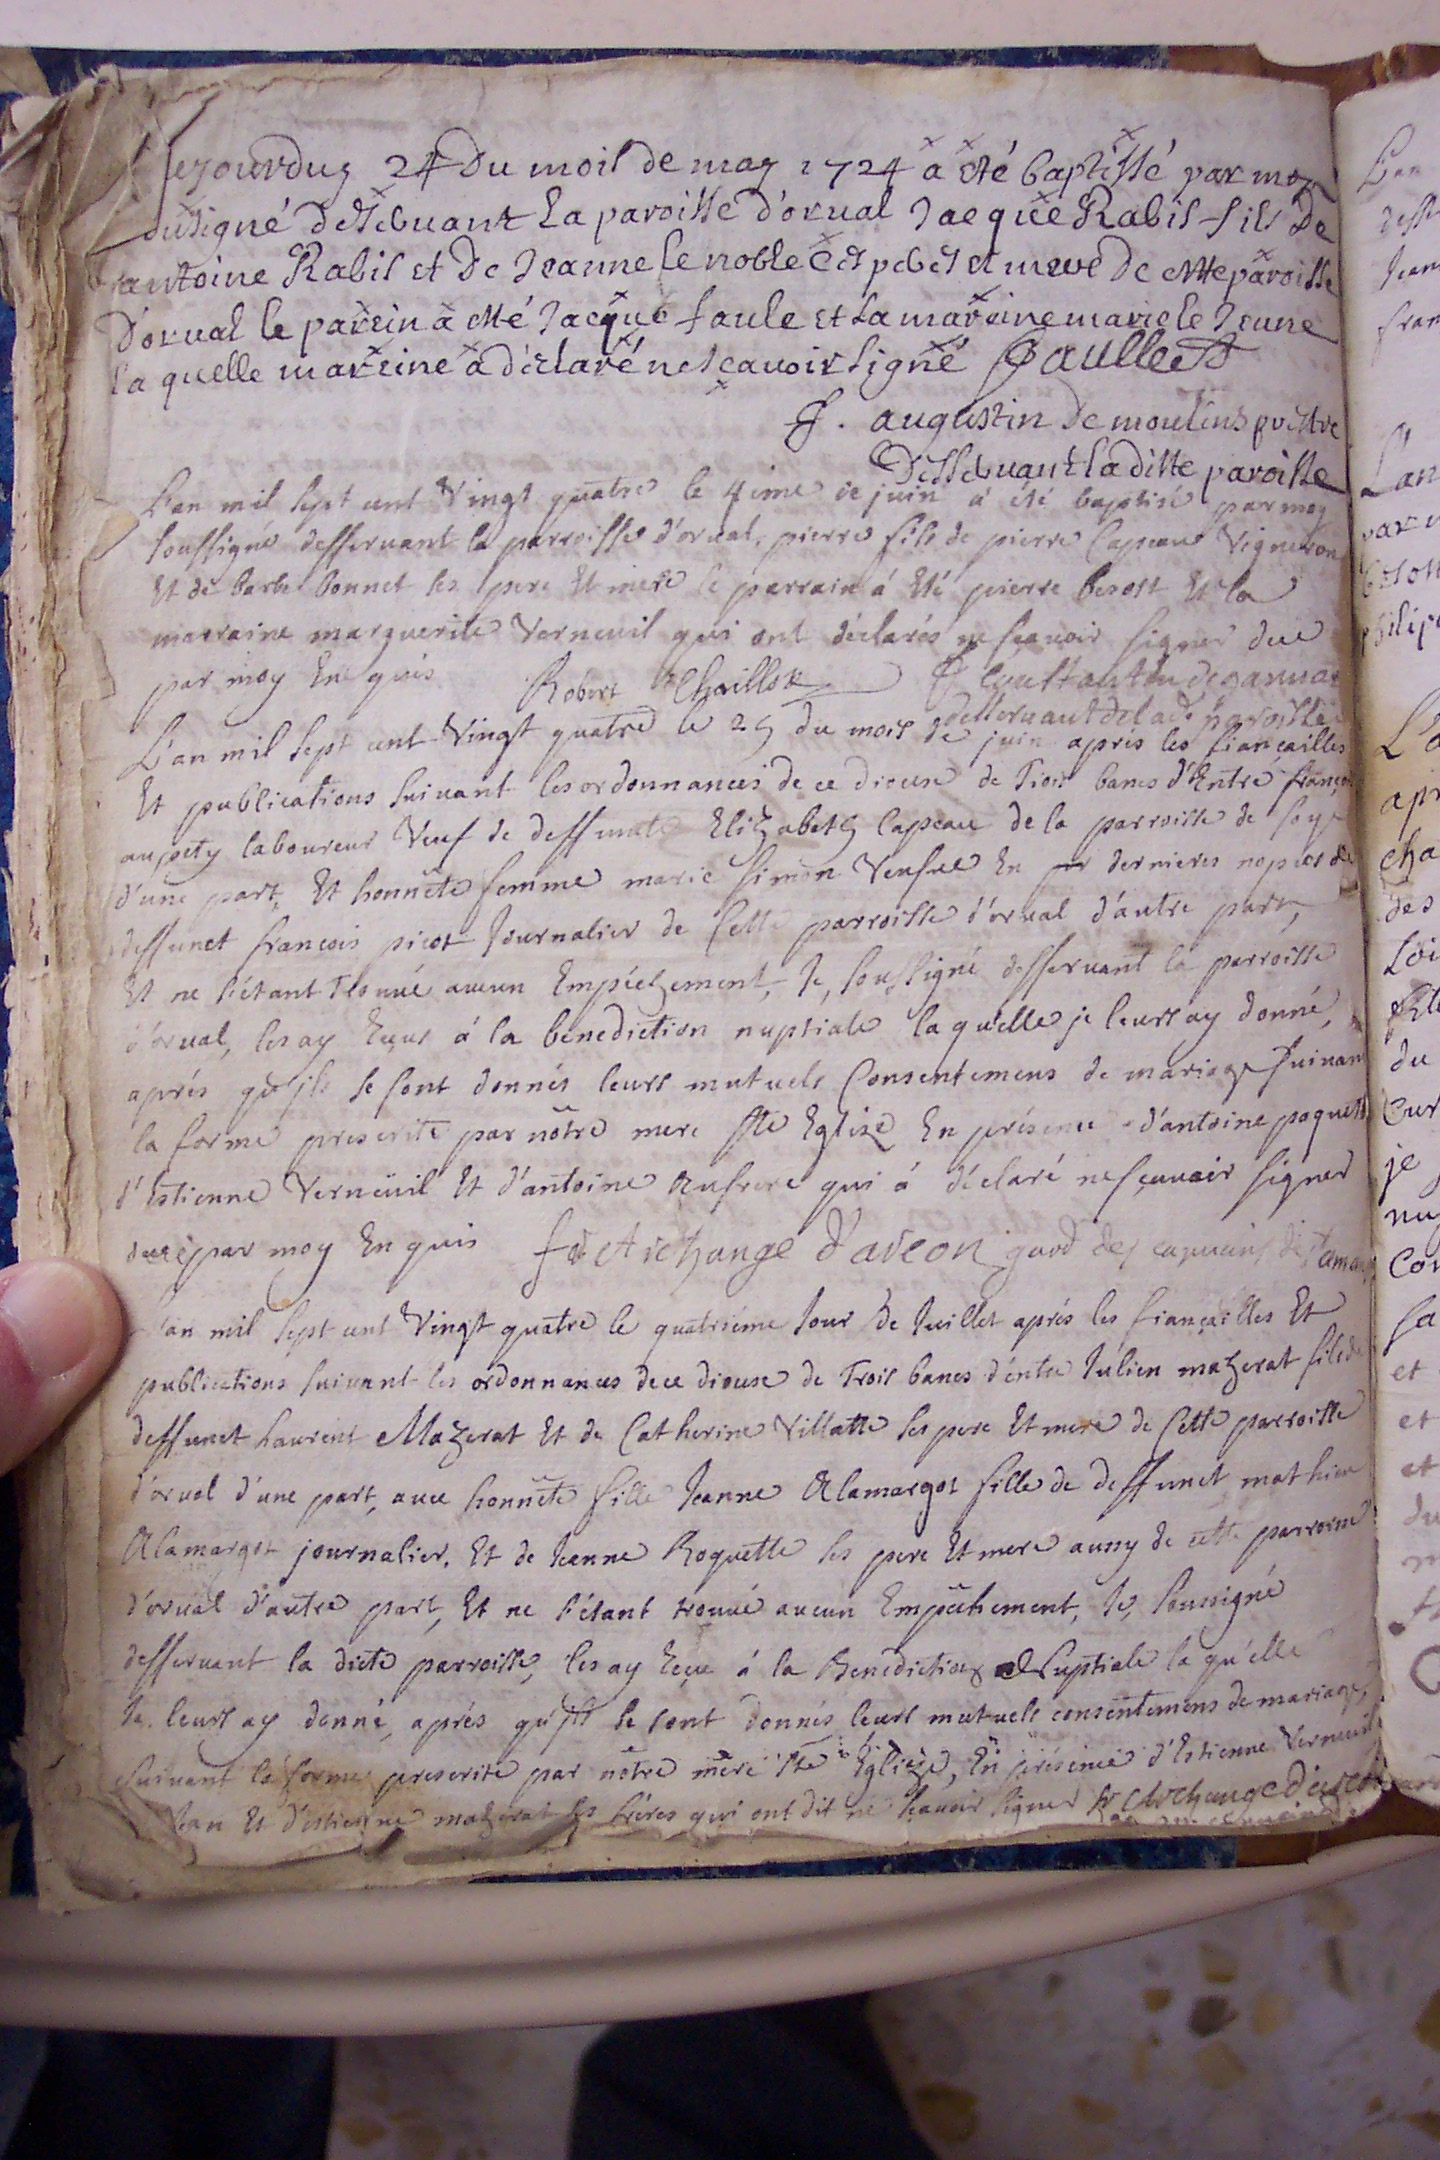 cejourduy 24 Du mois de may 1724 a eté baptissé par moy
susigné desebuant La paroisse d'orual Jacque Rabis fils De
antoine Rabis et De Jeanne le noble ces pebes et meve de cette paroisse
D'orual le parein a etté Jacque faule et La mareine marie le Jeune
la quelle mareine a déclaré ne scavoir signé Faullet
f. augustin de moulins prettre
dessebuant la ditte paroisse
L'an mil sept cent Vingt quatre le 4ieme de juin a été baptisé par moy
soussigné desservant la parroisse d'orval, pierre fils de pierre Capeau Vigneron
Et de barbe bonnet ses pere Et mere le parrain á Eté pierre besost Et la
marraine marguerite Verneuil qui ont déclarés ne sçavoir signer due
par moy Enquis Robert Chaillot f Constantin de gannat
desservant de lade paroisse
L'an mil sept cent Vingt quatre le 25 du mois de juin aprés les fiançailles
Et publications suivant les ordonnances de ce diocese de Trois bancs d'Entre françois
aupety laboureur Veuf de deffuncte Elizabeth Capeau de la parroisse de soye
d'une part, Et honnête femme marie Simon Veufue En dernieres nopces de
deffunct francois picot Journalier de Cette parroisse d'orval d'autre part,
Et ne s'étant Trouvé aucun Empéchement, Je, soussigné desservant la parroisse
d'orual, les ay Reçus á la benediction nuptiale laquelle je leurs ay donné,
aprés qu'ils se sont donnés leurs mutuels Consentemens de mariage suivant
la forme prescrite par nôtre mere ste Eglize En présence d'antoine paquett
d'Estienne Verneüil Et d'antoine Aufrere qui á déclaré ne sçauoir signer
due par moy Enquis fr Archange d'aveon gard des capucins de St amand
L'an mil sept cent Vingt quatre le quatriéme Jour de Juillet aprés les fiançailles Et
publications suivant les ordonnances de ce diocese de Trois bancs d'éntre Julien mazerat fils de
deffunct Laurent Mazerat Et de Catherine Villatte ses pere Et mere de Cette parroisse
d'orval d'une part, avec honnête fille Jeanne Alamargot fille de deffunct mathieu
Alamargot journalier, Et de Jeanne Roquette ses pere Et mere aussy de cette parroisse
d'orval d'autre part, Et ne s'étant trouvé aucun Empéchement, Je, soussigné
desservant la dicte parroisse, les ay Reçu á la Benediction Nuptiale la qu'elle
Je leurs ay donné, aprés qu'ils se sont donnés leurs mutuels consentemens de mariage,
suivant la forme prescrite par nôtre mere Ste Eglize, En présence d'Estienne Verneuil
Jean Et d'estienne mazerat ses fréres qui ont dit ne scavoir signer fr Archange